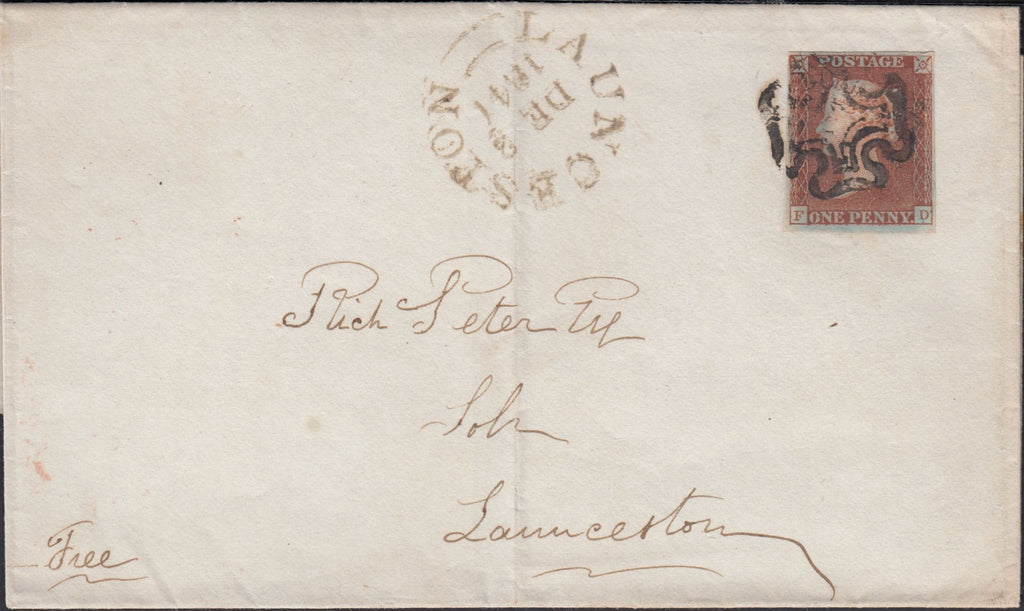 LAUNCESTON
DE
1841
POSTAGE
F ONE PENNY. D
Rich Peter Esq
Solr
Launceston
Free